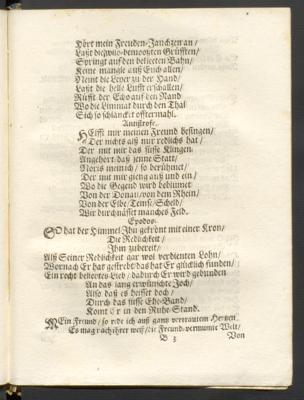 Hört mein Freuden-Jauchzen an /
Laßt die
Springt auf den beseeten Bahn /
Keine mangle auß Euch allen /
Nemt die Leyer zu der Hand /
Laßt die helle Lufft erschallen /
Rüfft der Echo auf den Rand
Wo die Limmat durch den Thal
Sich so schlancket offtermahl.
Antistrofe.
Helfft mir meinen Freund besingen /
Der nichts auß nur redlichs hat /
Der mit mir das süsse Klingen
Angehört daß jenne Statt /
Noris mein ich / so berühmet /
Der mit mir gieng auß und ein /
Wo die Gegend wird beblümet
Von der Donau / von dem Rhein /
Von der Elbe / Temse / Scheld /
Wir durchnässet manches Feld.
Epodos.
SO hat der Himmel Ihn gekrönt mit einer Kron /
Die Redlichkeit /
Ihm zubereit /
Alß Seiner Redlichkeit gar wol verdienten Lohn /
Wornach Er hat gestrebt das hat Er glücklich funden /
Ein recht beliebtes Lied / dadurch Er wird gebunden
An das lang erwünschte Joch /
Also daß es heisset doch /
Durch das süsse Ehe-Band /
Komt Er in den Ruhe-Stand.
MEin Freund / so rede ich auß gantz vertrautem Hertzen
Es mag wer weiß / die Freund-vermumte Welt /
B 3
Von